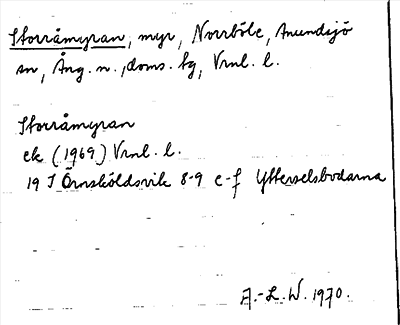 Storråmyran, myr, Norrböle, Anundsjö
sn, Ång. n., doms. tg, Vrnl. l.
Storråmyran
ek (1969) Vrnl. l.
19 I Örnsköldsvik 8-9 e-f Ytterselsbodarna
A.-L. W. 1970.